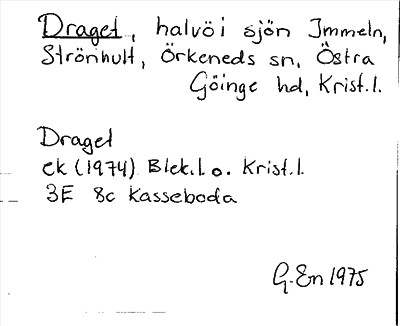 Draget, halvö i sjön Immeln,
Strönhult, Örkeneds sn, Östra
Göinge hd, Krist.l.
Draget
ek (1974) Blek.l o. Krist.l.
3E 8c Kasseboda
G. En 1975